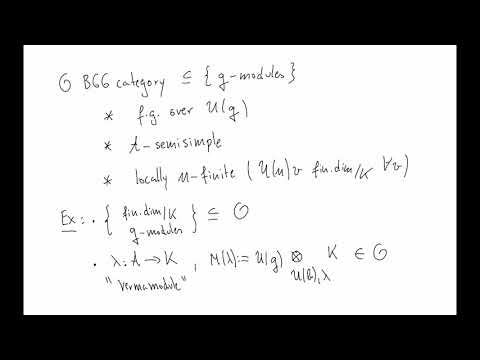 O BGG category ⊆ { g-modules }
* f.g. over U(g)
* t-semisimple
* locally n-finite ( U(n)v fin.dim/K ∀v )
Ex: · { fin.dim/K g-modules } ⊆ O
· λ: t → K , M(λ) := U(g) ⊗ K ∈ O
"Vermamodule" U(b),λ